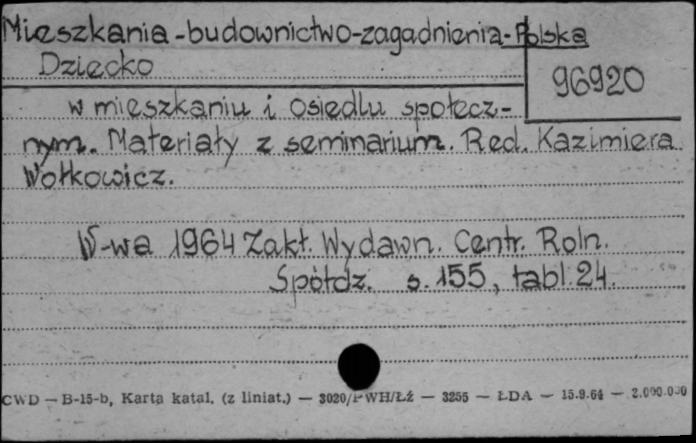 Mieszkania-budownictwo-zagadnienia-Polska
Dziecko
96920
w mieszkaniu i osiedlu społecz-
nym. Materiały z seminarium. Red. Kazimiera
Wołkowicz.
W-wa 1964 Zakł. Wydawn. Centr. Roln.
Spółdz. s. 155, tabl. 24.
CWD — B-15-b, Karta katal. (z liniat.) — 3020/PWH/Łź — 3255 — ŁDA — 15.9.64 — 2.000.000